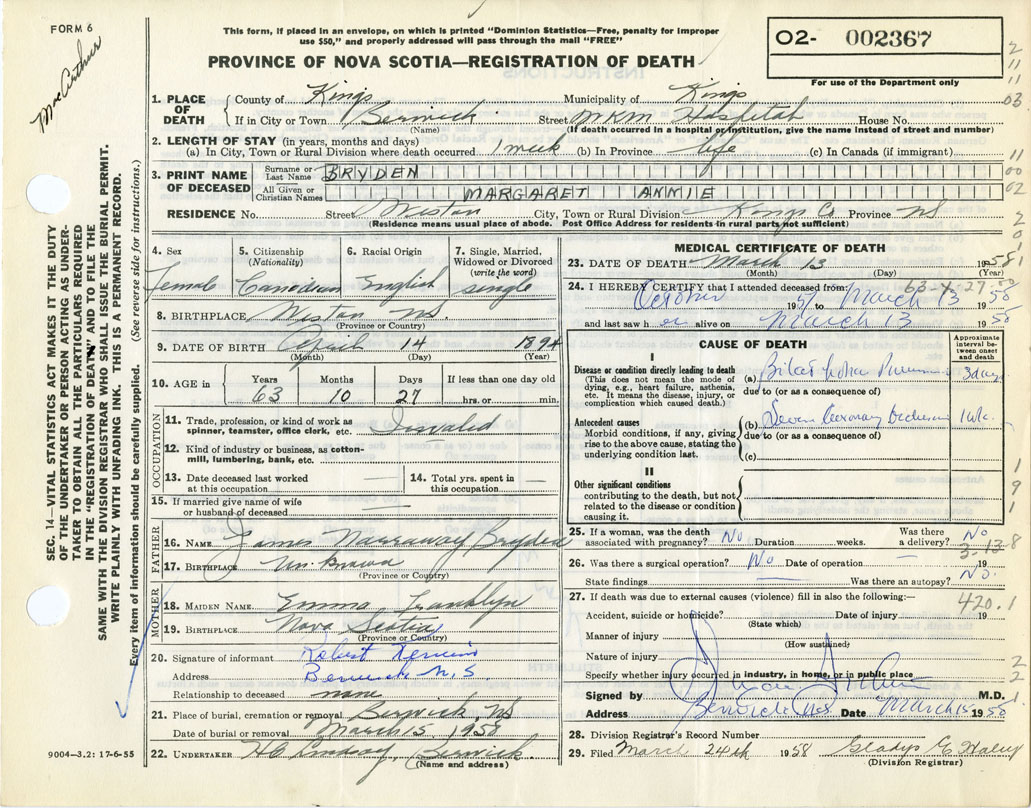 FORM 6
MacArthur
This form, if placed in an envelope, on which is printed "Dominion Statistics—Free, penalty for improper
use $50," and properly addressed will pass through the mail "FREE"
PROVINCE OF NOVA SCOTIA—REGISTRATION OF DEATH
02- 002367
For use of the Department only
1. PLACE OF DEATH
County of Kings Municipality of Kings
If in City or Town Berwick Street WKM Hospital House No.
(Name) (If death occurred in a hospital or institution, give the name instead of street and number)
2. LENGTH OF STAY (in years, months and days)
(a) In City, Town or Rural Division where death occurred 1 week (b) In Province life (c) In Canada (if immigrant)
3. PRINT NAME OF DECEASED
Surname or Last Name BRYDEN
All Given or Christian Names MARGARET ANNIE
RESIDENCE No. Street Weston City, Town or Rural Division Kings Co Province NS
(Residence means usual place of abode. Post Office Address for residents in rural parts not sufficient)
4. Sex Female
5. Citizenship (Nationality) Canadian
6. Racial Origin English
7. Single, Married, Widowed or Divorced (write the word) single
8. BIRTHPLACE Weston N.S.
(Province or Country)
9. DATE OF BIRTH April 14 1894
(Month) (Day) (Year)
10. AGE in Years 63 Months 10 Days 27 If less than one day old hrs. or min.
OCCUPATION
11. Trade, profession, or kind of work as spinner, teamster, office clerk, etc. Invalid
12. Kind of industry or business, as cotton-mill, lumbering, bank, etc.
13. Date deceased last worked at this occupation —
14. Total yrs. spent in this occupation —
15. If married give name of wife or husband of deceased
FATHER
16. NAME James Narraway Bryden
17. BIRTHPLACE Unknown
(Province or Country)
MOTHER
18. MAIDEN NAME Emma
19. BIRTHPLACE Nova Scotia
(Province or Country)
20. Signature of informant Robert
Address Berwick N.S
Relationship to deceased none
21. Place of burial, cremation or removal Berwick NS
Date of burial or removal March 15 1958
22. UNDERTAKER HC Lindsay, Berwick
(Name and address)
9004—3.2: 17-6-55
MEDICAL CERTIFICATE OF DEATH
23. DATE OF DEATH March 13 1958
(Month) (Day) (Year)
63-4-27
24. I HEREBY CERTIFY that I attended deceased from:
October 1957 to March 13 1958
and last saw her alive on March 13 1958
CAUSE OF DEATH
Approximate interval between onset and death
I
Disease or condition directly leading to death
(This does not mean the mode of dying, e.g., heart failure, asthenia, etc. It means the disease, injury, or complication which caused death.)
(a) 3 days
due to (or as a consequence of)
Antecedent causes
Morbid conditions, if any, giving rise to the above cause, stating the underlying condition last.
(b) Severe Coronary Occlusion 1 wk.
due to (or as a consequence of)
(c)
II
Other significant conditions
contributing to the death, but not related to the disease or condition causing it.
25. If a woman, was the death associated with pregnancy? No Duration weeks. Was there a delivery? No
26. Was there a surgical operation? No Date of operation — 19
State findings Was there an autopsy? No.
27. If death was due to external causes (violence) fill in also the following:—
420.1
Accident, suicide or homicide? Date of injury 19
(State which)
Manner of injury
(How sustained)
Nature of injury
Specify whether injury occurred in industry, in home, or in public place
Signed by M.D.
Address Berwick NS Date March 15 1958
28. Division Registrar's Record Number
29. Filed March 24th 1958 Gladys E Haley
(Division Registrar)
SEC. 14—VITAL STATISTICS ACT MAKES IT THE DUTY
OF THE UNDERTAKER OR PERSON ACTING AS UNDER-
TAKER TO OBTAIN ALL THE PARTICULARS REQUIRED
IN THE "REGISTRATION OF DEATH" AND TO FILE THE
SAME WITH THE DIVISION REGISTRAR WHO SHALL ISSUE THE BURIAL PERMIT.
WRITE PLAINLY WITH UNFADING INK. THIS IS A PERMANENT RECORD.
Every item of information should be carefully supplied. (See reverse side for instructions.)